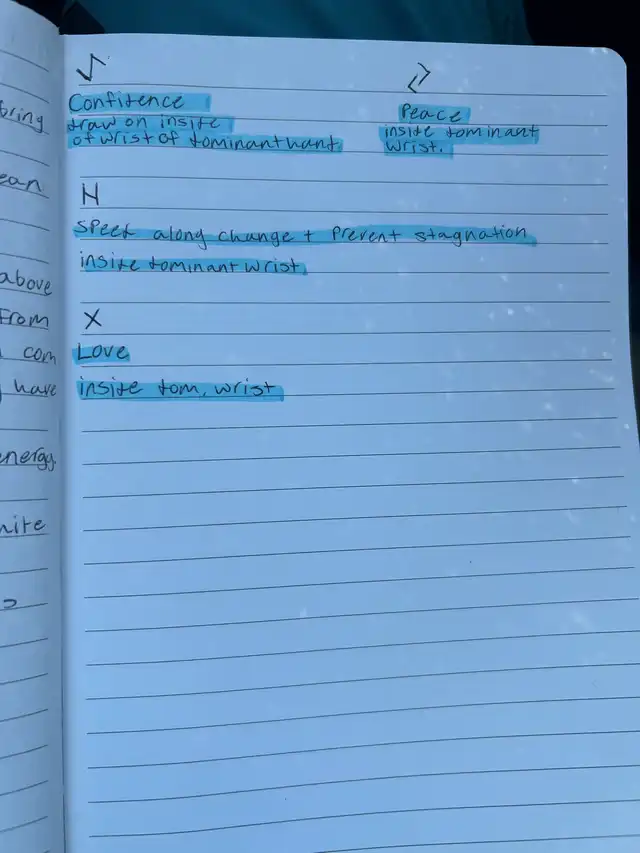 bring
ean
above
From
com
have
energy.
ᛊ
Confitence
traw on insite
of wrist of tominant hant
ᛃ
Peace
insite tominant
wrist.
ᚺ
Speet along change + prevent stagnation
insite tominant wrist
X
Love
insite tom, wrist